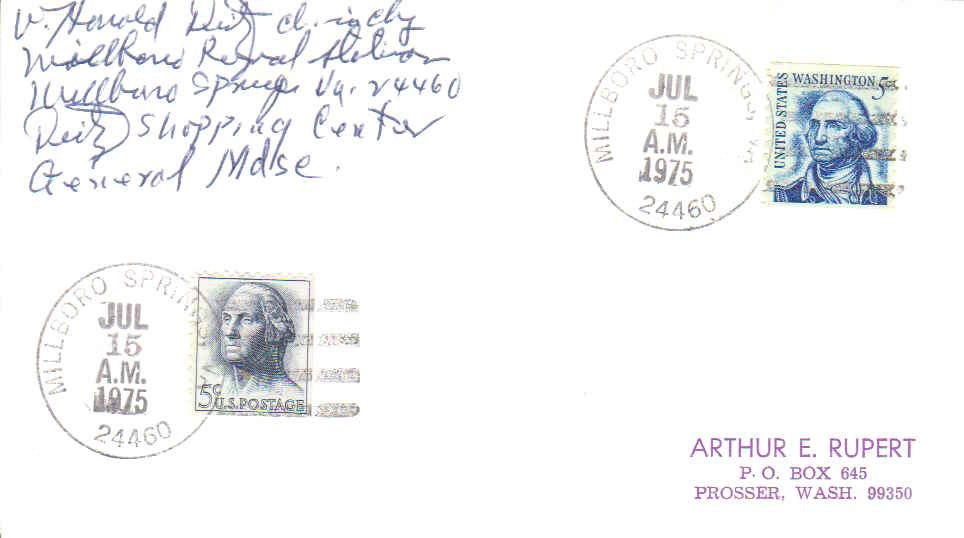 V. Harold Deitz
Millboro Rural Station
Millboro Springs Va. 24460
Deitz Shopping Center
General Mdse.
MILLBORO SPRINGS, VA
JUL
15
A.M.
1975
24460
UNITED STATES WASHINGTON 5c
MILLBORO SPRINGS
JUL
15
A.M.
1975
24460
5c U.S. POSTAGE
ARTHUR E. RUPERT
P. O. BOX 645
PROSSER, WASH. 99350